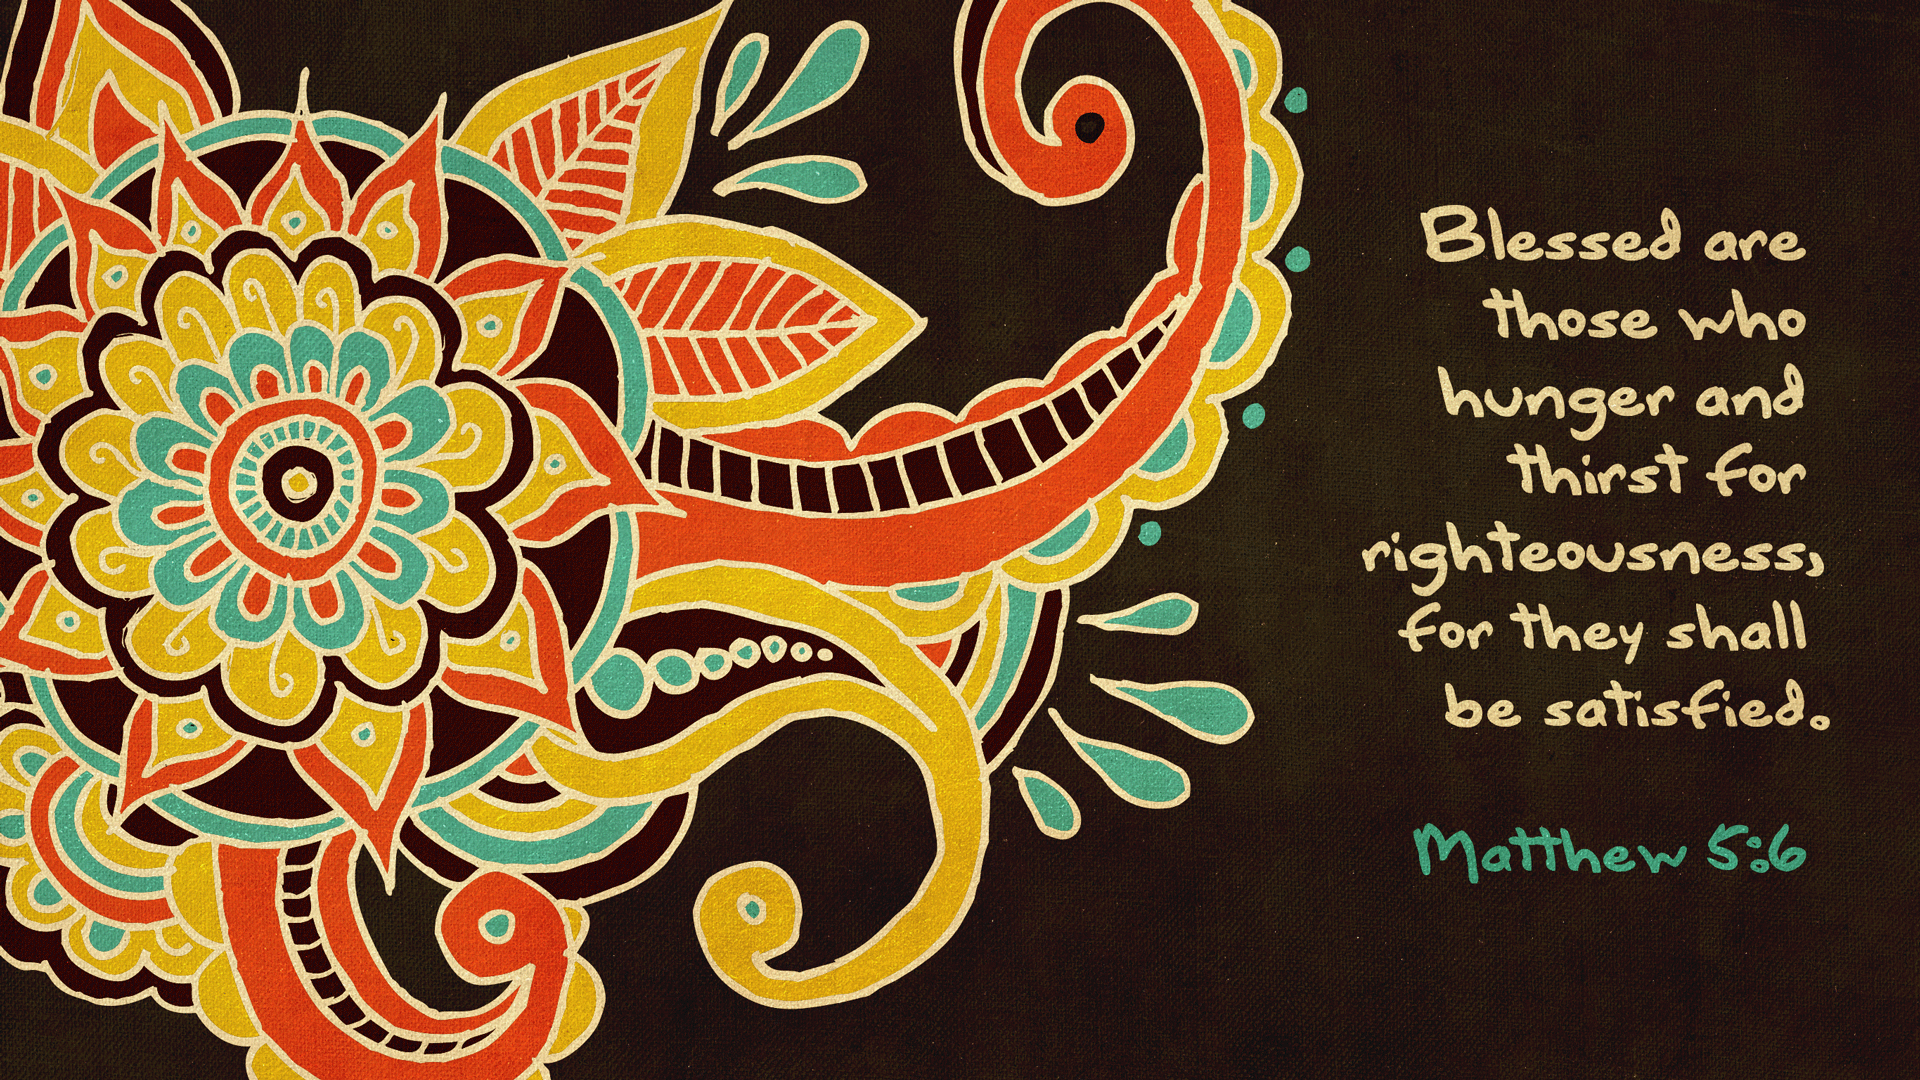 Blessed are
those who
hunger and
thirst for
righteousness,
for they shall
be satisfied.
Matthew 5:6